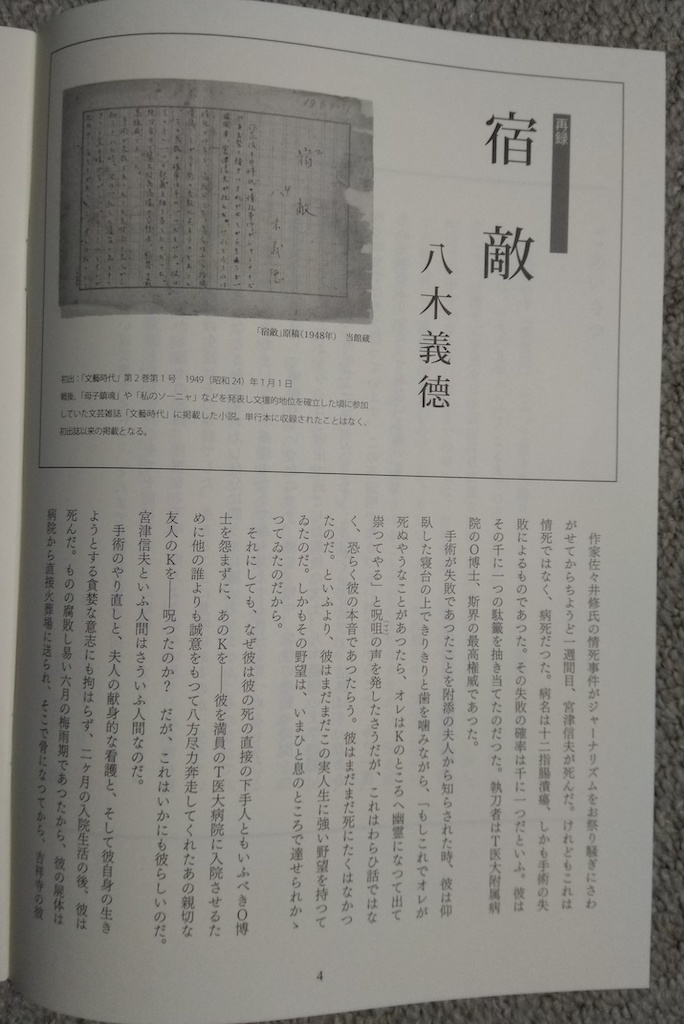 再録
宿敵
八木義德
宿敵
八木義德
「宿敵」原稿(1948年) 当館蔵
初出:「文藝時代」第2巻第1号 1949(昭和24)年1月1日
戦後、「母子鎮魂」や「私のソーニャ」などを発表し文壇的地位を確立した頃に参加
していた文芸雑誌「文藝時代」に掲載した小説。単行本に収録されたことはなく、
初出誌以来の掲載となる。
作家佐々井修氏の情死事件がジャーナリズムをお祭り騒ぎにさわ
がせてからちようど一週間目、宮津信夫が死んだ。けれどもこれは
情死ではなく、病死だつた。病名は十二指腸潰瘍、しかも手術の失
敗によるものであつた。その失敗の確率は千に一つだといふ。彼は
その千に一つの駄籤を抽き当てたのだつた。執刀者はT医大附属病
院のO博士、斯界の最高権威であつた。
手術が失敗であつたことを附添の夫人から知らされた時、彼は仰
臥した寝台の上できりきりと歯を噛みながら、「もしこれでオレが
死ぬやうなことがあつたら、オレはKのところへ幽霊になつて出て
祟つてやる」と呪咀の声を発したさうだが、これはわらひ話ではな
く、恐らく彼の本音であつたらう。彼はまだまだ死にたくはなかつ
たのだ。といふより、彼はまだまだこの実人生に強い野望を持つて
ゐたのだ。しかもその野望は、いまひと息のところで達せられかゝ
つてゐたのだから。
それにしても、なぜ彼は彼の死の直接の下手人ともいふべきO博
士を怨まずに、あのKを――彼を満員のT医大病院に入院させるた
めに他の誰よりも誠意をもつて八方尽力奔走してくれたあの親切な
友人のKを――呪つたのか? だが、これはいかにも彼らしいのだ。
宮津信夫といふ人間はさういふ人間なのだ。
手術のやり直しと、夫人の献身的な看護と、そして彼自身の生き
ようとする貪婪な意志にも拘はらず、二ヶ月の入院生活の後、彼は
死んだ。ものの腐敗し易い六月の梅雨期であつたから、彼の屍体は
病院から直接火葬場に送られ、そこで骨になつてから、吉祥寺の彼
4